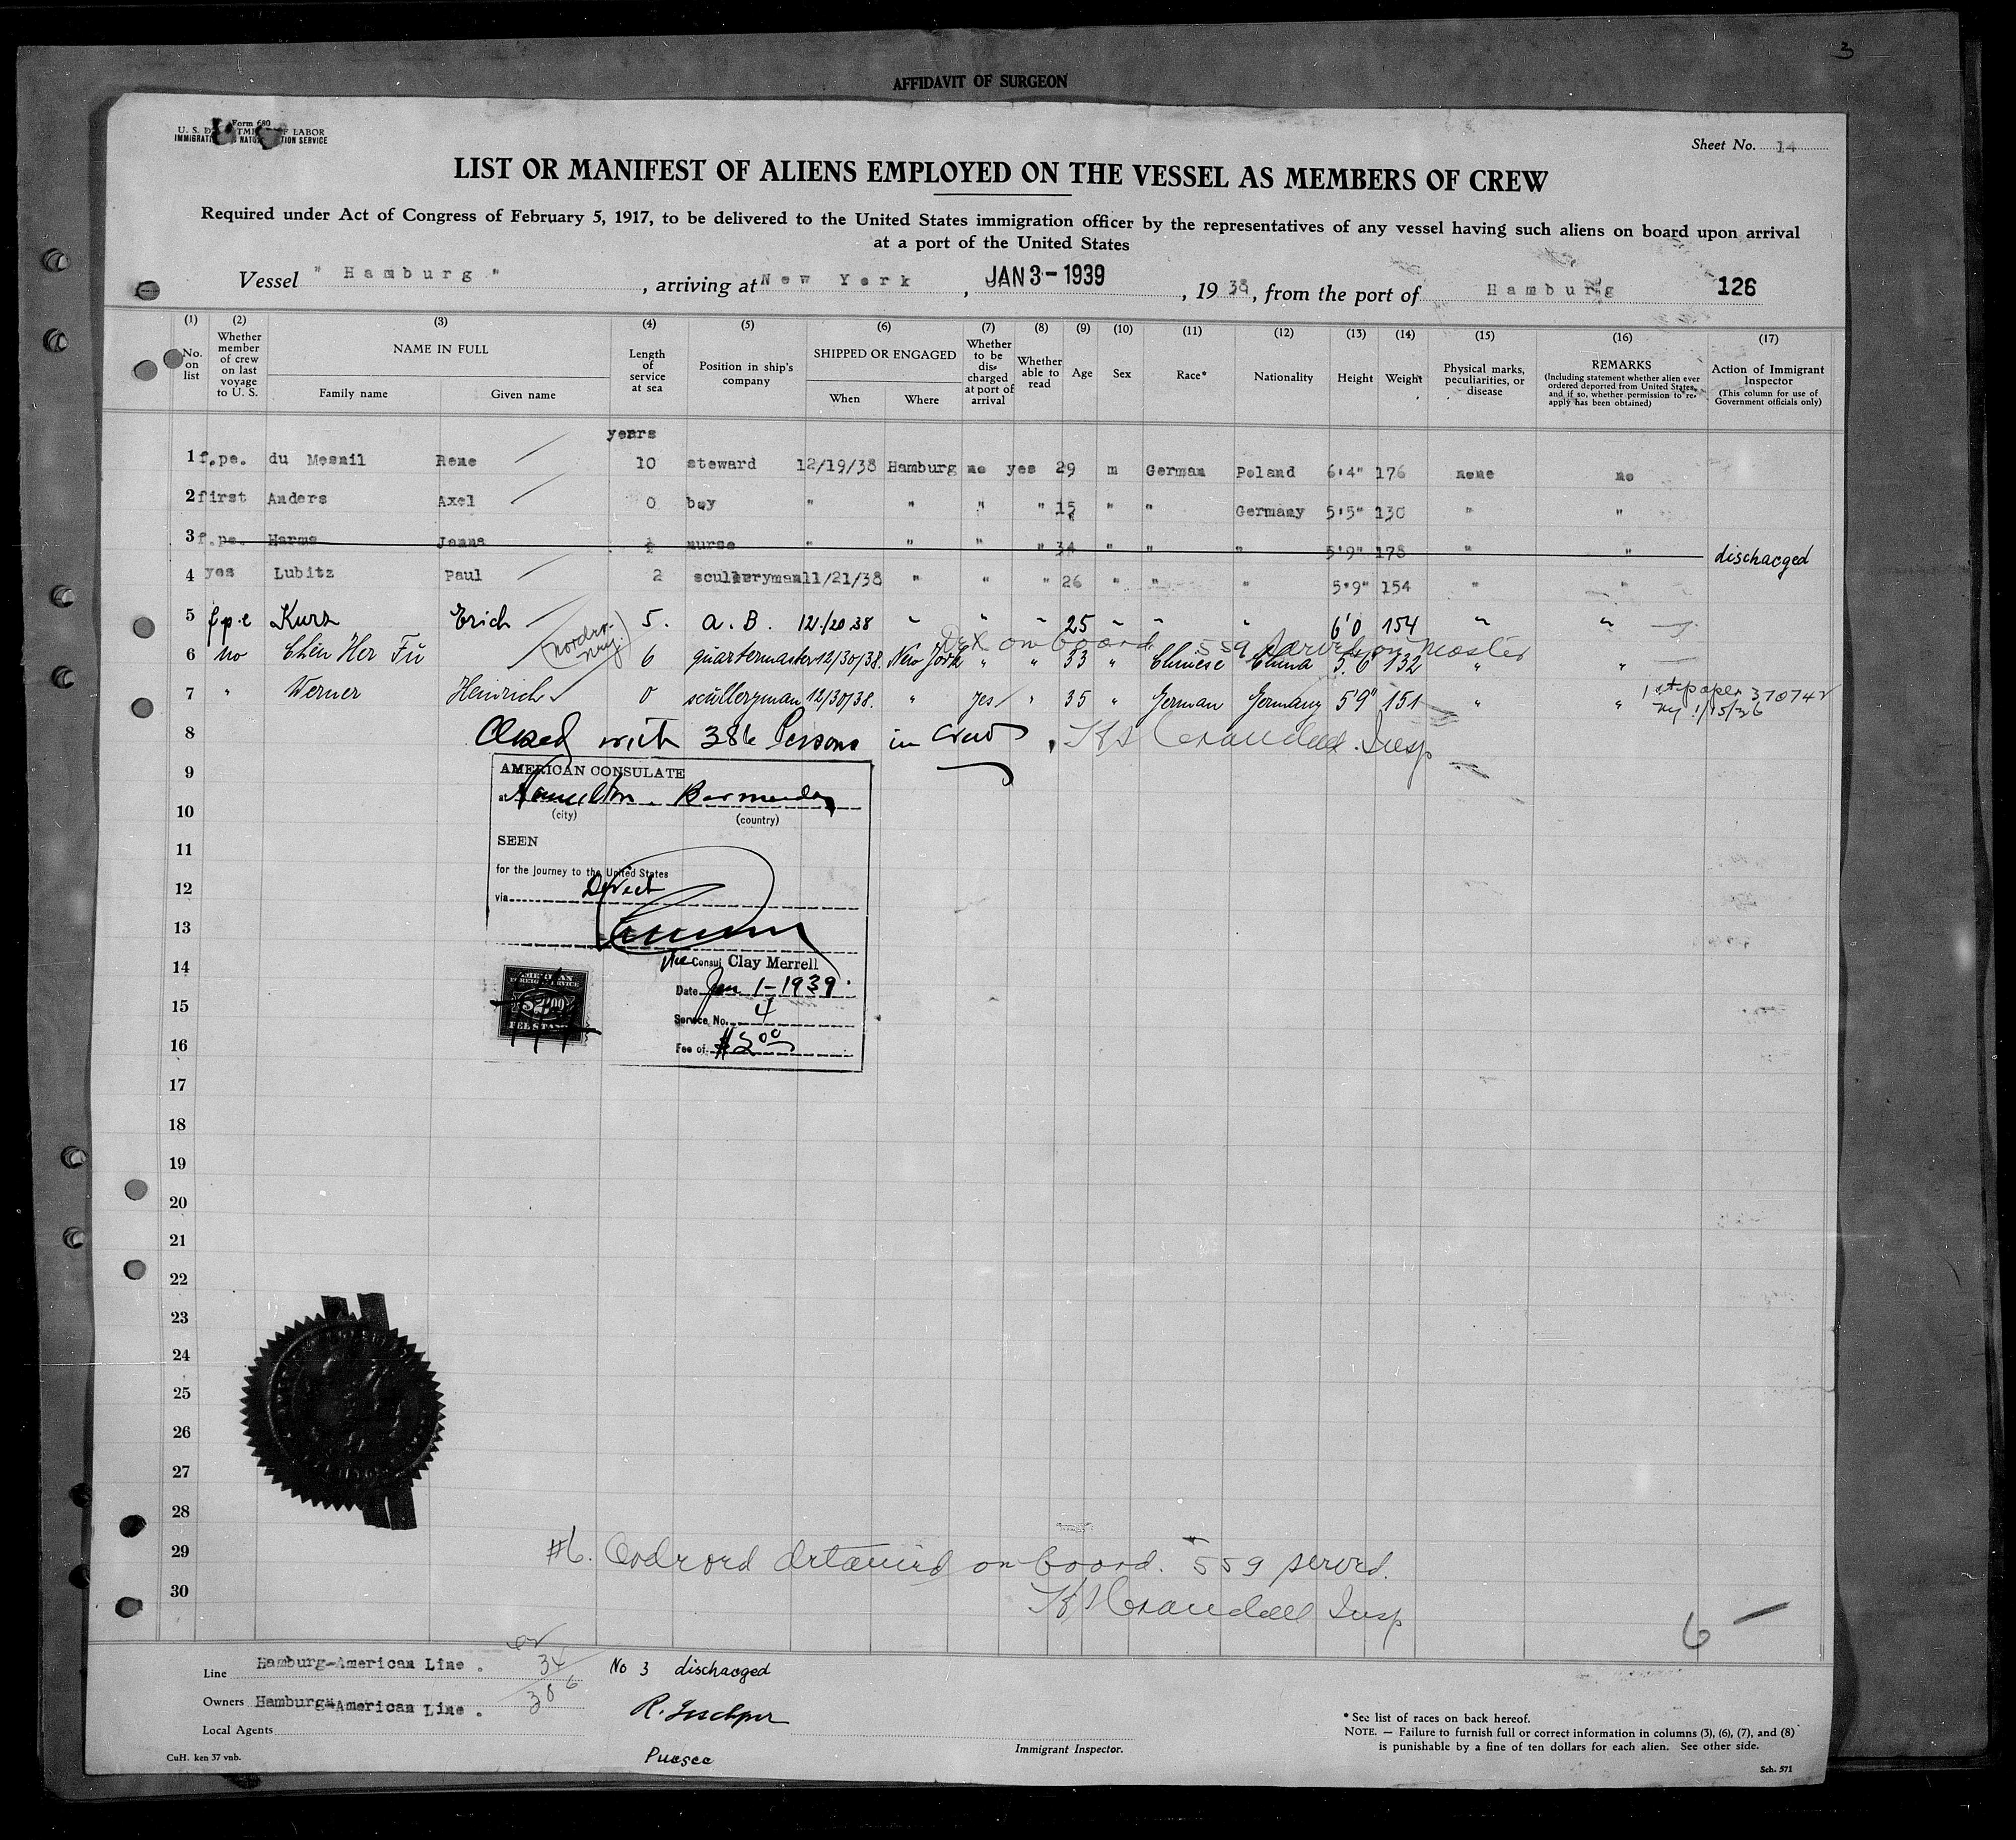 3
AFFIDAVIT OF SURGEON
Form 680
U. S. D TM OF LABOR
IMMIGRATI NATU TION SERVICE
Sheet No. 14
LIST OR MANIFEST OF ALIENS EMPLOYED ON THE VESSEL AS MEMBERS OF CREW
Required under Act of Congress of February 5, 1917, to be delivered to the United States immigration officer by the representatives of any vessel having such aliens on board upon arrival
at a port of the United States
Vessel "Hamburg", arriving at New York, JAN 3-1939, 1938, from the port of Hamburg 126
(1) (2) (3) (4) (5) (6) (7) (8) (9) (10) (11) (12) (13) (14) (15) (16) (17)
No. on list
Whether member of crew on last voyage to U. S.
NAME IN FULL
Family name Given name
Length of service at sea
Position in ship's company
SHIPPED OR ENGAGED
When Where
Whether to be discharged at port of arrival
Whether able to read
Age
Sex
Race*
Nationality
Height
Weight
Physical marks, peculiarities, or disease
REMARKS
(Including statement whether alien ever ordered deported from United States, and if so, whether permission to reapply has been obtained)
Action of Immigrant Inspector
(This column for use of Government officials only)
years
1 f.pe. du Mesnil Rene 10 steward 12/19/38 Hamburg no yes 29 m German Poland 6'4" 176 none no
2 first Anders Axel 0 boy " " " " 15 " " Germany 5'5" 130 " "
3 f.pe. Harms Janna nurse " " " " 34 " " " 5'9" 178 " " discharged
4 yes Lubitz Paul 2 sculleryman 11/21/38 " " " 26 " " " 5'9" 154 " "
5 f.p.e Kurz Erich 5. a. B. 12/20 38 " " " 25 " " " 6'0 154 " "
Det on board 559 served on Master
6 no Chen Her Fu 6 quartermaster 12/30/38. New York " " 33 " Chinese China 5'6" 132 " "
7 " Werner Heinrich 0 scülleryman 12/30/38. " yes " 35 " German Germany 5'9" 151 " "
1st paper 370742
ny 1/15/36
8 Closed with 386 Persons in Crew, Crandall Insp
9
10
11
12
13
14
15
16
17
18
19
20
21
22
23
24
25
26
27
28
29
30
AMERICAN CONSULATE
at Hamilton. Bermuda
(city) (country)
SEEN
for the journey to the United States
via Direct
Vice Consul Clay Merrell
Date Jan 1-1939.
Service No. 4
Fee of $2.00
AMERICAN
FOREIGN SERVICE
$2.00
FEE STAMP
#6. Ordered detained on board. 559 served.
Crandall Insp
6
Line Hamburg-American Line.
34
386
No 3 discharged
Owners Hamburg-American Line.
Local Agents
Purser
Immigrant Inspector.
* See list of races on back hereof.
NOTE. — Failure to furnish full or correct information in columns (3), (6), (7), and (8)
is punishable by a fine of ten dollars for each alien. See other side.
CuH. ken 37 vnb.
Sch. 571